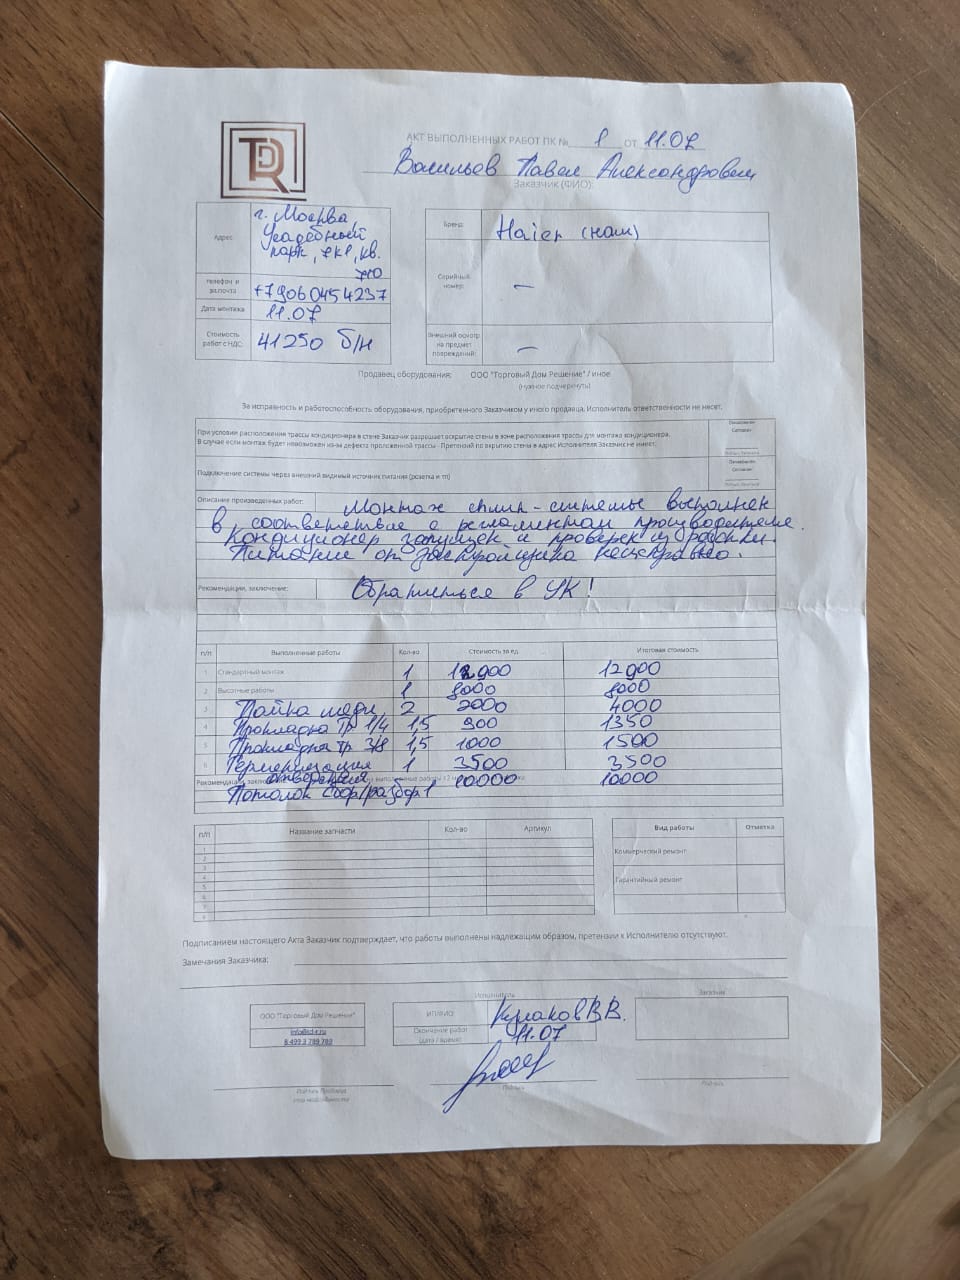 АКТ ВЫПОЛНЕННЫХ РАБОТ ПК № 1 от 11.07
Васильев Павел Александрович
Заказчик (ФИО):
Адрес г. Москва, Усадебный парк, 7к1, кв.
телефон и эл.почта +79060454237
Дата монтажа 11.07
Стоимость работ с НДС: 41250 б/н
Бренд: Haier (наш)
Серийный номер: —
Внешний осмотр на предмет повреждений: —
Продавец оборудования: ООО "Торговый Дом Решение" / иное
(нужное подчеркнуть)
За исправность и работоспособность оборудования, приобретенного Заказчиком у иного продавца, Исполнитель ответственности не несет.
При условия расположения трассы кондиционера в стене Заказчик разрешает вскрытие стены в зоне расположения трассы для монтажа кондиционера.
В случае если монтаж будет невозможен из-за дефекта проложенной трассы - Претензий по вскрытию стены в адрес Исполнителя Заказчик не имеет.
Ознакомлен Согласен
Подключение системы через внешний видимый источник питания (розетка и тп)
Ознакомлен Согласен
Описание произведенных работ: Монтаж сплит-системы выполнен
в соответствие с регламентом производителя.
Кондиционер запущен и проверен
Питание от застройщика
Рекомендации, заключение: Обратиться в УК!
п/п Выполненные работы Кол-во Стоимость за ед. Итоговая стоимость
1 Стандартный монтаж 1 12900 12900
2 Высотные работы 1 8000 8000
3 Пайка меди 2 2000 4000
4 Прокладка тр 1/4 1,5 900 1350
5 Прокладка тр 3/8 1,5 1000 1500
6 Герметизация 1 3500 3500
отверстия
Потолок сбор/разбор 1 10000 10000
п/п Название запчасти Кол-во Артикул
1
2
3
4
5
6
7
8
Вид работы Отметка
Коммерческий ремонт
Гарантийный ремонт
Подписанием настоящего Акта Заказчик подтверждает, что работы выполнены надлежащим образом, претензии к Исполнителю отсутствуют.
Замечания Заказчика:
ООО "Торговый Дом Решение"
info@td-r.ru
8 499 3 789 789
Исполнитель
ИП/ФИО Кулаков В.В.
Окончание работ (дата / время): 11.07
Подпись
Заказчик
Подпись